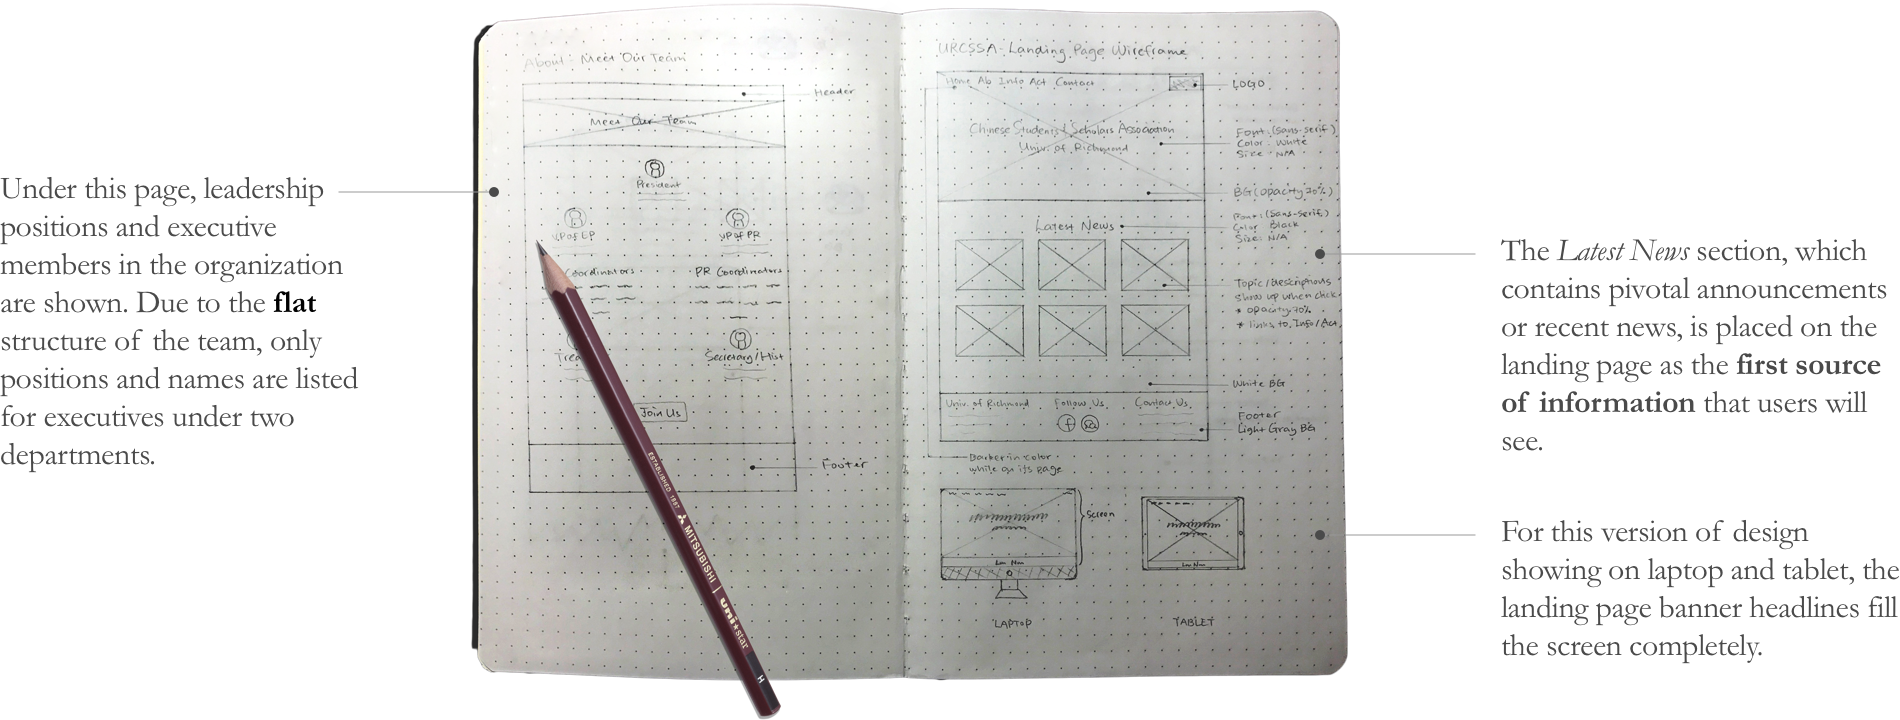 Under this page, leadership
positions and executive
members in the organization
are shown. Due to the flat
structure of the team, only
positions and names are listed
for executives under two
departments.
About : Meet Our Team
Header
Meet Our Team
President
VP of EP
VP of PR
Coordinators
PR Coordinators
Secretary/Hist
Join Us
Footer
ESTABLISHED 1887
MITSUBISHI
uni star
H
URCSSA - Landing Page Wireframe
Home Ab Info Act Contact
LOGO
Chinese Students / Scholars Association
Univ. of Richmond
Font: (Sans-serif)
Color: White
Size: N/A
BG (opacity 70%)
Latest News
Font: (Sans-serif)
Color: Black
Size: N/A
Topic/Descriptions
show up when click
* opacity 70%
* links to Info/Act
White BG
Univ. of Richmond
Follow Us
Contact Us
f
Footer
Light Gray BG
Darker in color
while on its page
Screen
LAPTOP
TABLET
The Latest News section, which
contains pivotal announcements
or recent news, is placed on the
landing page as the first source
of information that users will
see.
For this version of design
showing on laptop and tablet, the
landing page banner headlines fill
the screen completely.